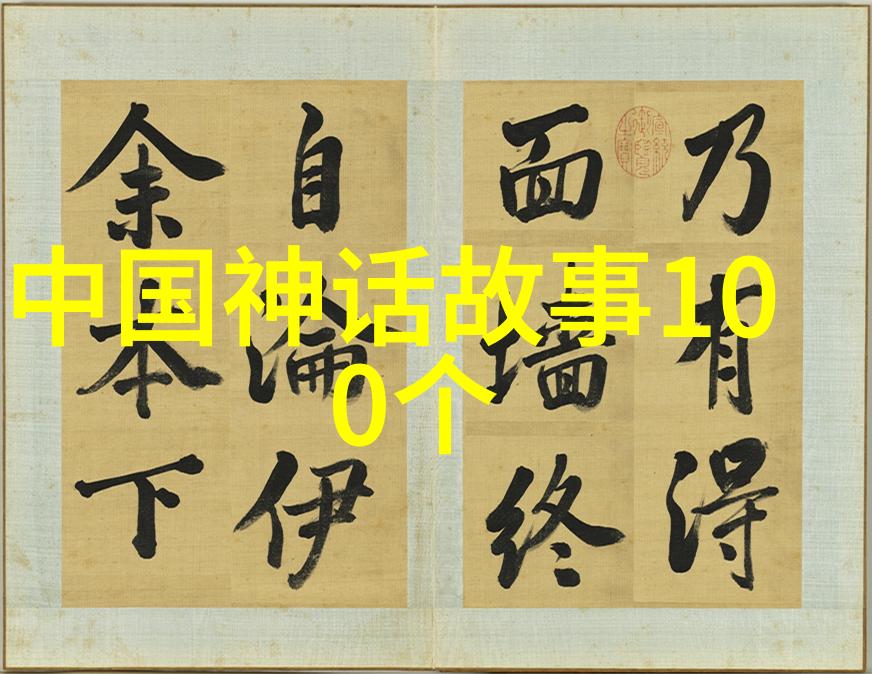 中国神话故事10
0个
乃有得
面墙终
自淪伊
余本下